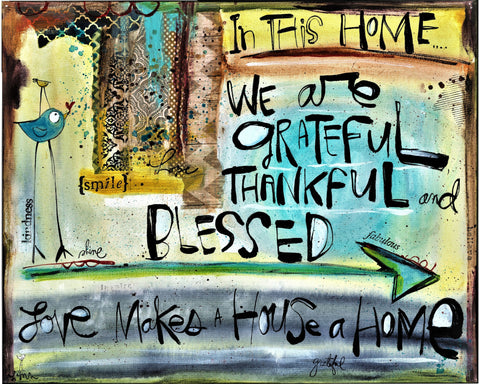 In This Home....
We are
Grateful
Thankful and
Blessed
Love
{smile}
kindness
shine
fabulous
Love Makes A House a Home
grateful